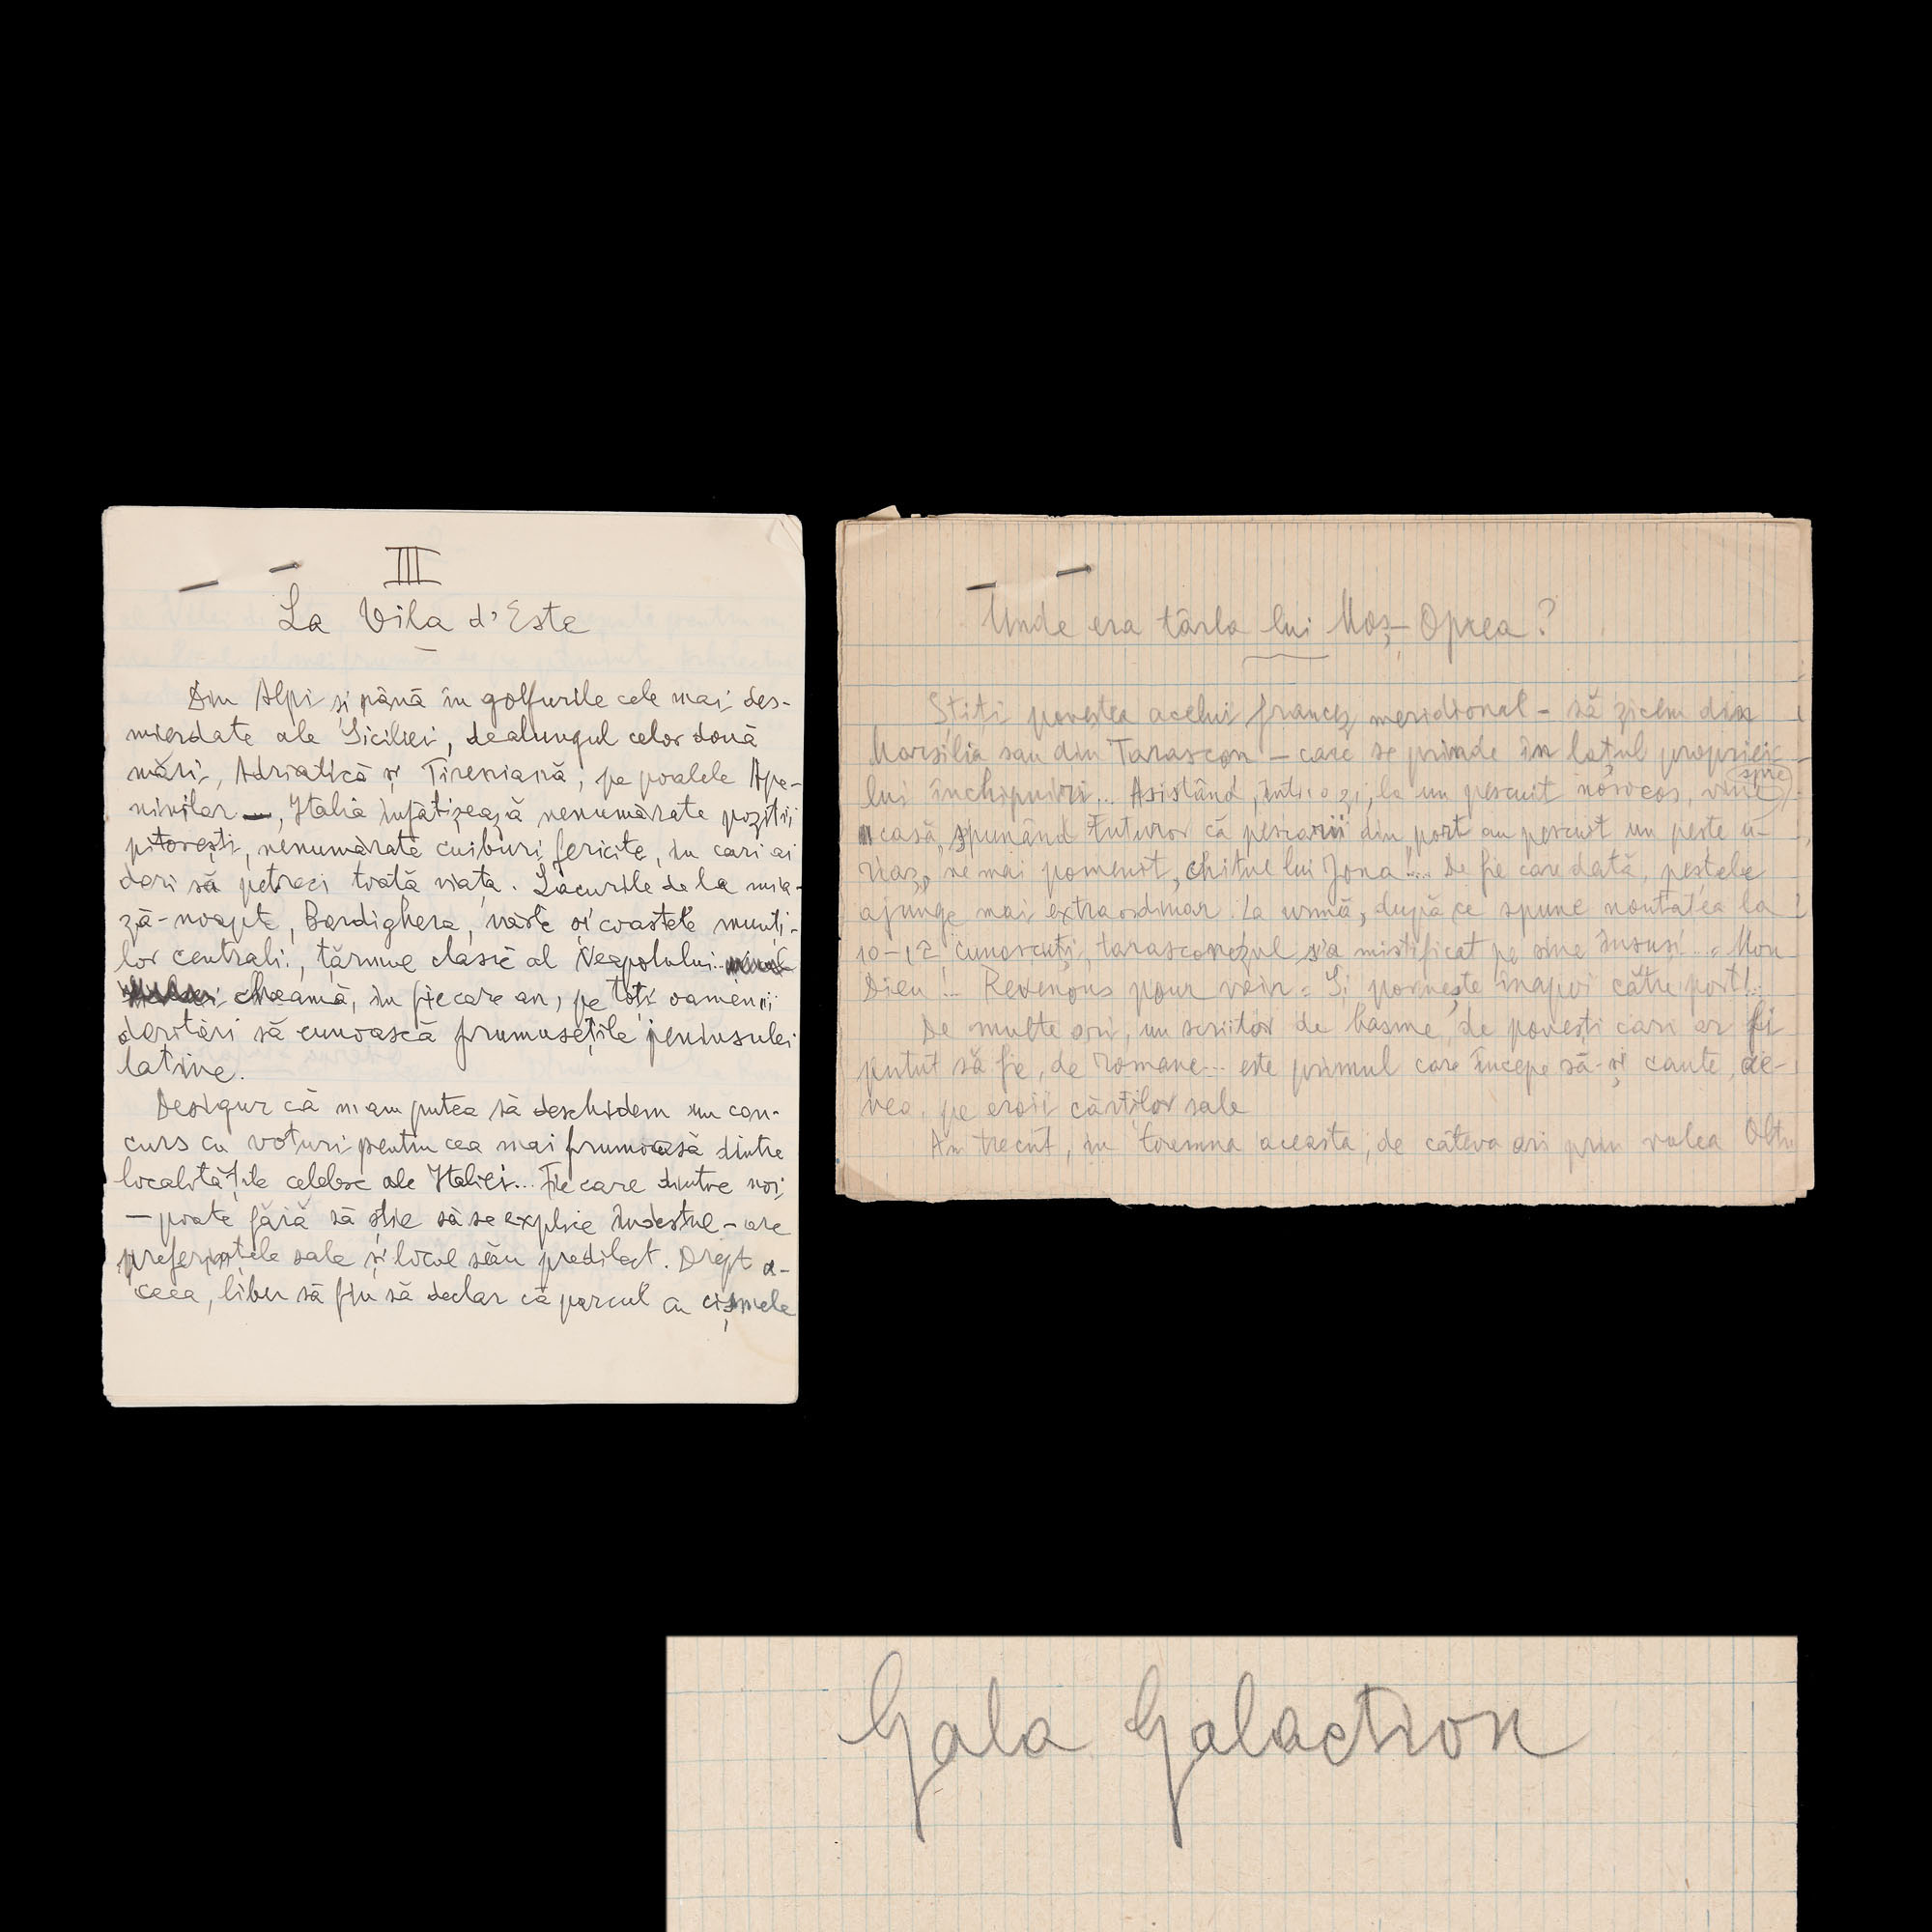 III
La Vila d'Este
Din Alpi și până în golfurile cele mai des-
mierdate ale Siciliei, dealungul celor două
mări, Adriatică și Tireniană, pe poalele Ape-
ninilor —, Italia înfățișează nenumărate poziții
pitorești, nenumărate cuiburi fericite, în cari ai
dori să petreci toată viața. Lacurile de la mia-
ză-noapte, Bordighera, văile și coastele munți-
lor centrali, țărmul clasic al Neapolului..
cheamă, în fiecare an, pe toți oamenii
doritori să cunoască frumusețile peninsulei
latine.
Desigur că n'am putea să deschidem un con-
curs cu voturi pentru cea mai frumoasă dintre
localitățile celebre ale Italiei... Fiecare dintre noi
— poate fără să știe să se explice îndestul - are
preferințele sale și locul său predilect. Drept a-
ceea, liber să fiu să declar că parcul cu cișmele
Unde era târla lui Moș Oprea?
Știți povestea acelui francez meridional - să zicem din
Marsilia sau din Tarascon - care se prinde în lațul propriei
lui închipuiri... Asistând, într'o zi, la un pescuit norocos, vine spre
casă, spunând tuturor că pescarii din port au pescuit un pește u-
riaș, ne mai pomenit, chitul lui Iona!... De fie care dată, peștele
ajunge mai extraordinar. La urmă, după ce spune noutatea la
10-12 cunoscuți, tarasconezul s'a mistificat pe sine însuși... „Mon
Dieu!.. Revenons pour voir" Și pornește înapoi către port!..
De multe ori, un scriitor de basme, de povești cari ar fi
putut să fie, de romane... este primul care începe să-și caute, ae-
vea, pe eroii cărților sale
Am trecut, în toamna aceasta, de câteva ori prin valea Oltu
Gala Galaction